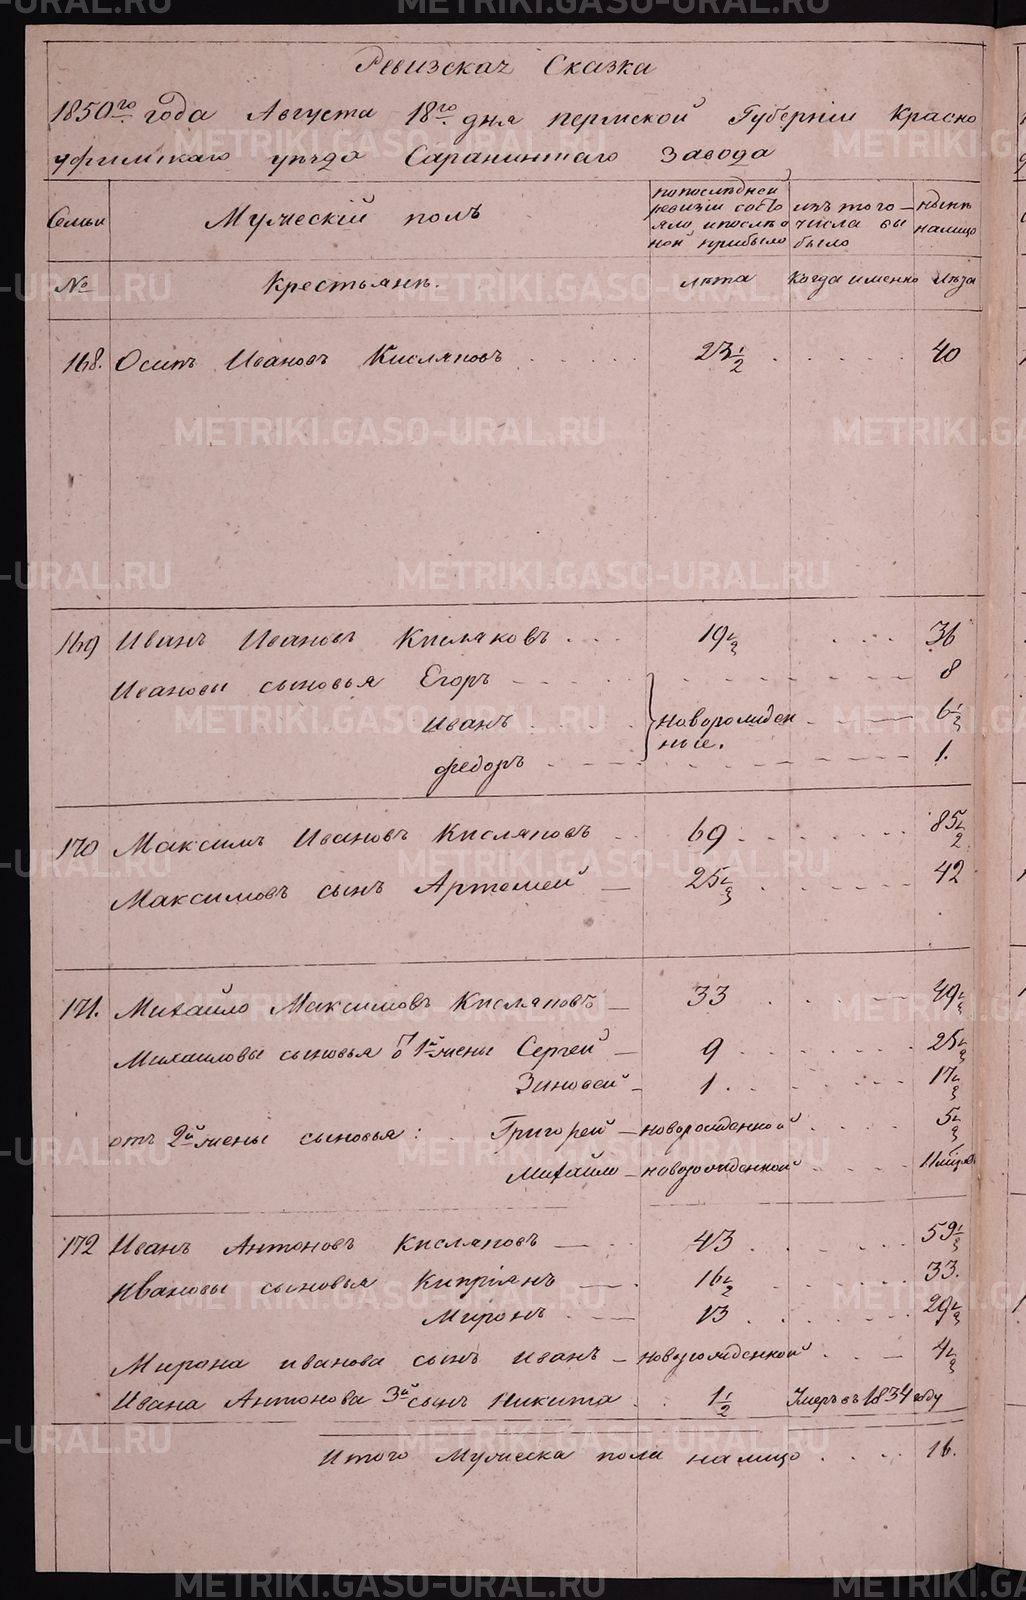 Ревизская Сказка
1850го года Августа 18го дня Пермской Губернiи Красно
уфимскаго уезда Саранинскаго Завода
Семьи Мужескiй полъ по последней ревизiи состояло, и после оной прибыло изъ того числа выбыло ныне налицо
№ Крестьяне. лета Когда именно Лета
168. Осипъ Ивановъ Кисляковъ 23 1/2 40
169 Иванъ Ивановъ Кисляковъ 19 1/2 36
Ивановы сыновья Егоръ 8
Иванъ новорожденные. 6 1/2
Федоръ 1.
170 Максимъ Ивановъ Кисляковъ 69 85 1/2
Максимовъ сынъ Артемей 25 1/2 42
171. Михайло Максимовъ Кисляковъ 33 49 1/2
Михаиловы сыновья о 1й жены Сергей 9 25 1/2
Зиновей 1. 17 1/2
отъ 2й жены сыновья: Григорей новорожденной 5 1/2
Михайло новорожденной 11 мцов
172 Иванъ Антоновъ Кисляковъ 43 59 1/2
Ивановы сыновья Кипрiянъ 16 1/2 33.
Миронъ 13 29 1/2
Мирона Иванова сынъ Иванъ новорожденной 4 1/2
Ивана Антонова 3й сынъ Никита 1 1/2 Умеръ въ 1834 году
Итого Мужеска пола налицо 16.
METRIKI.GASO-URAL.RU